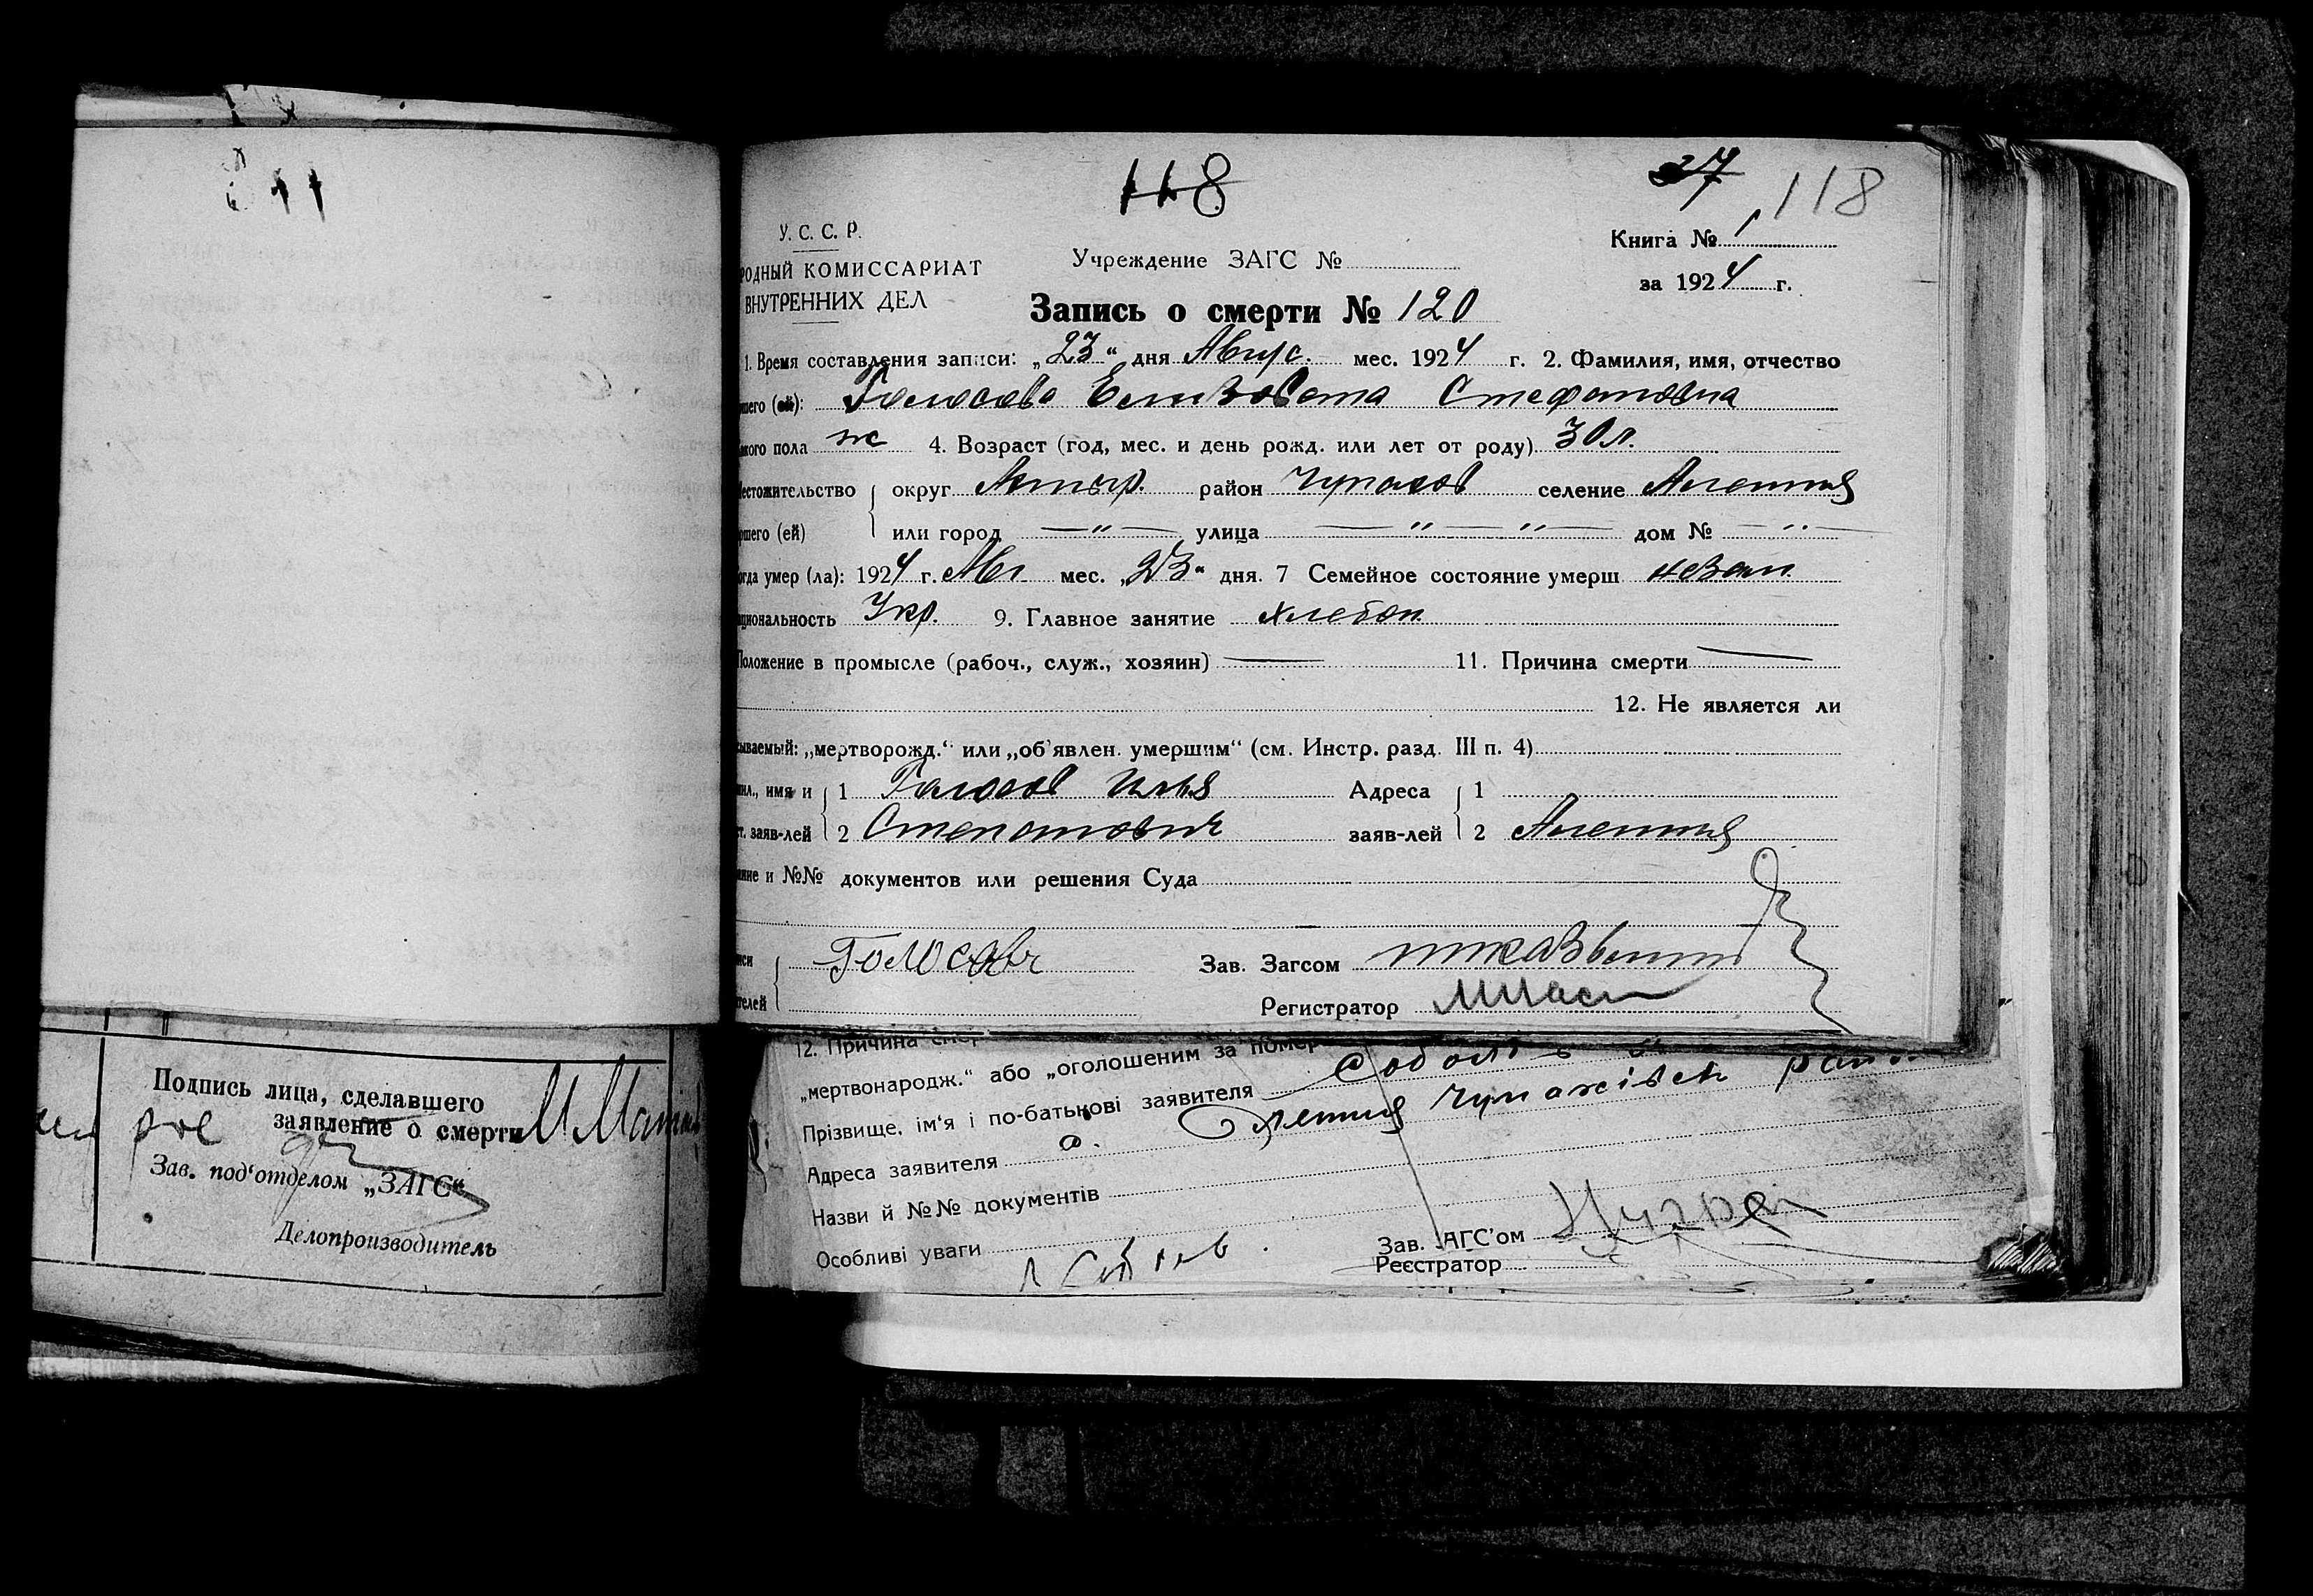 118
37 118
У. С. С. Р.
РОДНЫЙ КОМИССАРИАТ
ВНУТРЕННИХ ДЕЛ
Учреждение ЗАГС №
Книга № 1
за 1924 г.
Запись о смерти № 120
1. Время составления записи: „23“ дня Авгус. мес. 1924 г. 2. Фамилия, имя, отчество
шего (ей): Голосова Елизовета Стефановна
ского пола ж 4. Возраст (год, мес. и день рожд. или лет от роду) 30 л.
естожительство округ Ахтыр. район Чупахов селение Алешня
ршего (ей) или город —„— улица —„—„— дом № —„—
огда умер (ла): 1924 г. Авг мес. „23“ дня. 7 Семейное состояние умерш незам.
циональность Укр. 9. Главное занятие хлебоп.
Положение в промысле (рабоч., служ., хозяин) — 11. Причина смерти —
12. Не является ли
сываемый: „мертворожд.“ или „об'явлен. умершим“ (см. Инстр. разд. III п. 4)
ил., имя и 1 Голосов Илья Адреса 1
ст. заяв-лей 2 Степанович заяв-лей 2 Алешня
ание и №№ документов или решения Суда
иси Голосов Зав. Загсом
телей Регистратор
12. Причина смер
„мертвонародж.“ або „оголошеним за помер
Прізвище, ім'я і по-батькові заявителя
Адреса заявителя с. Олешня Чупахівськ
Назви й №№ документів
Особливі уваги
Зав. ЗАГС'ом
Реєстратор
Подпись лица, сделавшего
заявление о смерти
Зав. под'отделом „ЗАГС“
Делопроизводитель